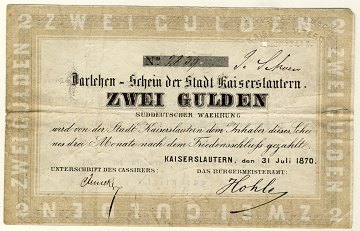 2 ZWEI GULDEN 2
ZWEI GULDEN
ZWEI GULDEN
No.
Darlehen - Schein der Stadt Kaiserslautern.
ZWEI GULDEN
SÜDDEUTSCHER WAEHRUNG
wird von der Stadt Kaiserslautern dem Inhaber dieses Schei
nes drei Monate nach dem Friedensschluß gezahlt.
KAISERSLAUTERN, den 31 Juli 1870.
UNTERSCHRIFT DES CASSIRERS:
DAS BÜRGERMEISTERAMT:
Hohle
2 ZWEI GULDEN 2